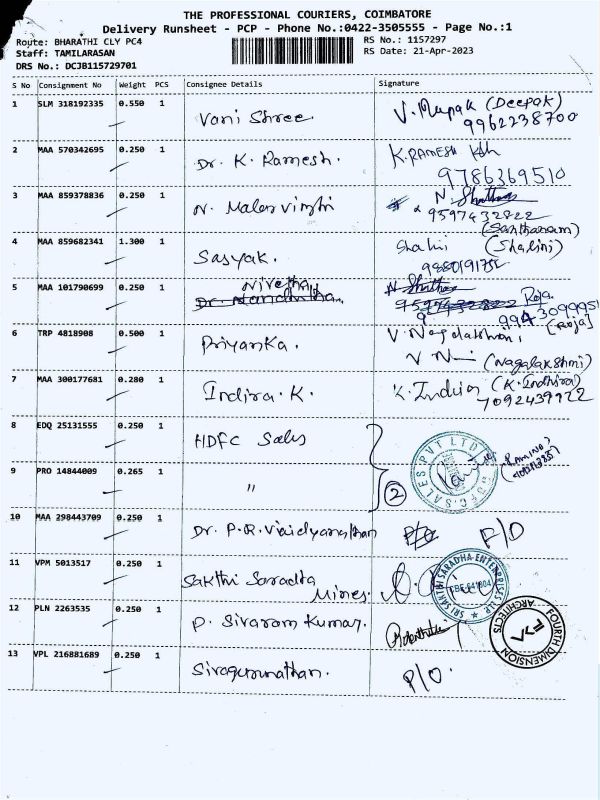 THE PROFESSIONAL COURIERS, COIMBATORE
Delivery Runsheet - PCP - Phone No.:0422-3505555 - Page No.:1
Route: BHARATHI CLY PC4
RS No.: 1157297
Staff: TAMILARASAN
RS Date: 21-Apr-2023
DRS No.: DCJB115729701
S No Consignment No Weight PCS Consignee Details Signature
1 SLM 318192335 0.550 1 Vani Shree (Deepak)
9962238700
2 MAA 570342695 0.250 1 Dr. K. Ramesh. K.RAMESH
9786369510
3 MAA 859378836 0.250 1 N.
9597432822
(Santhanam)
4 MAA 859682341 1.300 1 Sasyak. Shalini (Shalini)
5 MAA 101790699 0.250 1 Nivetha Roja
[Roja]
6 TRP 4818908 0.500 1 Priyanka. V.
(Nagalakshmi)
7 MAA 300177681 0.280 1 Indira. K. K. Indira (K. Indhira)
7092439922
8 EDQ 25131555 0.250 1 HDFC Sales
SALES PVT LTD
9 PRO 14844009 0.265 1 " 2
10 MAA 298443709 0.250 1 Dr. P.R. Vaidyanathan P/O
11 VPM 5013517 0.250 1 Sakthi Saradha Mines.
SRI SAKTHI SARADHA ENTERPRISES LLP
12 PLN 2263535 0.250 1 P. Sivaram Kumar.
FOURTH DIMENSION ARCHITECTS
13 VPL 216881689 0.250 1 Sivagurunathan. P/O.